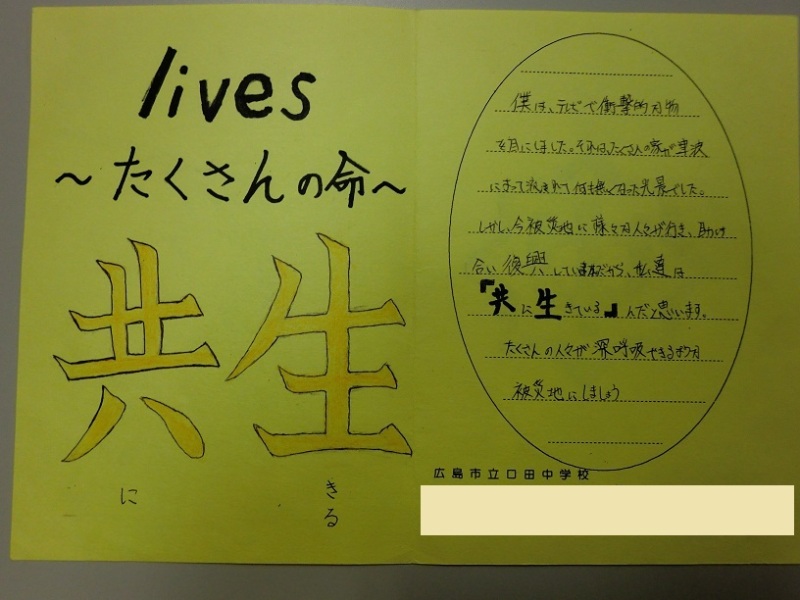 lives
～たくさんの命～
共生
に
きる
僕は、テレビで衝撃的な物
を目にしました。それはたくさんの家が津波
によって流されて何も無くなった光景でした。
しかし、今被災地に様々な人々が行き、助け
合い復興していますだから、私達は
『共に生きている』んだと思います。
たくさんの人々が深呼吸できるような
被災地にしましょう
広島市立口田中学校